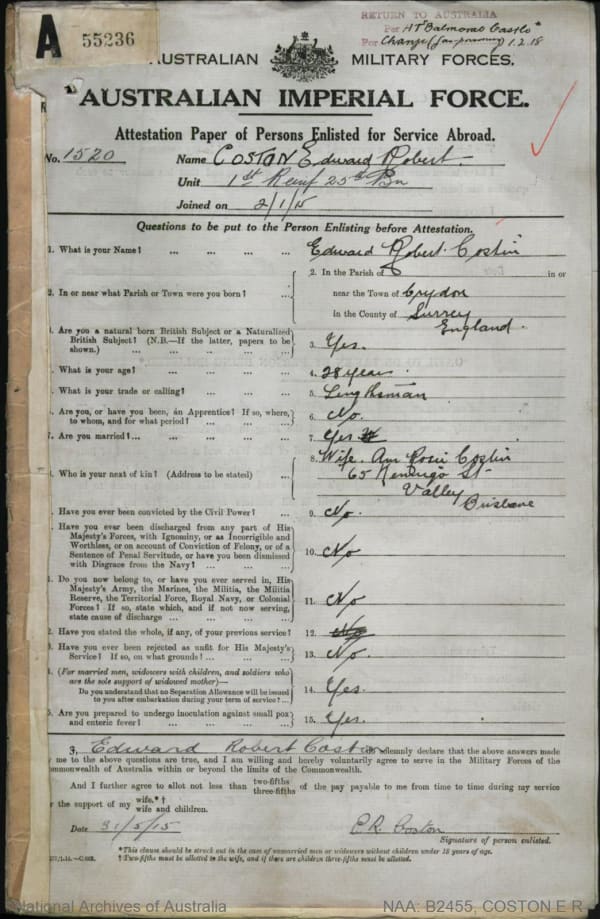 RETURN TO AUSTRALIA
Per HT Balmoral Castle
For Change 1.2.18
A
55236
AUSTRALIAN MILITARY FORCES.
AUSTRALIAN IMPERIAL FORCE.
Attestation Paper of Persons Enlisted for Service Abroad.
No. 1520 Name COSTON Edward Robert
Unit 1st Reinf 25th Bn
Joined on 2/1/15
Questions to be put to the Person Enlisting before Attestation.
1. What is your Name? ... ... ... ... Edward Robert Costin
2. In the Parish of in or
2. In or near what Parish or Town were you born? ... near the Town of Crydon
in the County of Surrey
England.
Are you a natural born British Subject or a Naturalized
British Subject? (N.B.—If the latter, papers to be
shown.) ... ... ... ... 3. Yes.
What is your age? ... ... ... ... 4. 28 years
What is your trade or calling? ... ... ... 5. Lengthsman
Are you, or have you been, an Apprentice? If so, where,
to whom, and for what period? ... ... ... 6. No.
Are you married? ... ... ... ... 7. Yes
8. Wife.
Costin
Who is your next of kin? (Address to be stated) ... 65 St
Valley
Brisbane
Have you ever been convicted by the Civil Power? ... 9. No.
Have you ever been discharged from any part of His
Majesty's Forces, with Ignominy, or as Incorrigible and
Worthless, or on account of Conviction of Felony, or of a
Sentence of Penal Servitude, or have you been dismissed
with Disgrace from the Navy? ... ... ... 10. No
Do you now belong to, or have you ever served in, His
Majesty's Army, the Marines, the Militia, the Militia
Reserve, the Territorial Force, Royal Navy, or Colonial
Forces? If so, state which, and if not now serving,
state cause of discharge ... ... ... 11. No
2. Have you stated the whole, if any, of your previous service? 12. No
Have you ever been rejected as unfit for His Majesty's
Service? If so, on what grounds? ... ... ... 13. No.
(For married men, widowers with children, and soldiers who
are the sole support of widowed mother)—
Do you understand that no Separation Allowance will be issued
to you after embarkation during your term of service? ... 14. Yes.
5. Are you prepared to undergo inoculation against small pox
and enteric fever? ... ... ... ... 15. Yes.
I, Edward Robert Costin do solemnly declare that the above answers made
me to the above questions are true, and I am willing and hereby voluntarily agree to serve in the Military Forces of the
Commonwealth of Australia within or beyond the limits of the Commonwealth.
And I further agree to allot not less than two-fifths
three-fifths of the pay payable to me from time to time during my service
the support of my wife.* †
wife and children.
Date 31/5/15 E.R. Coston
Signature of person enlisted.
*This clause should be struck out in the case of unmarried men or widowers without children under 18 years of age.
†Two-fifths must be allotted to the wife, and if there are children three-fifths must be allotted.
National Archives of Australia NAA: B2455, COSTON E R